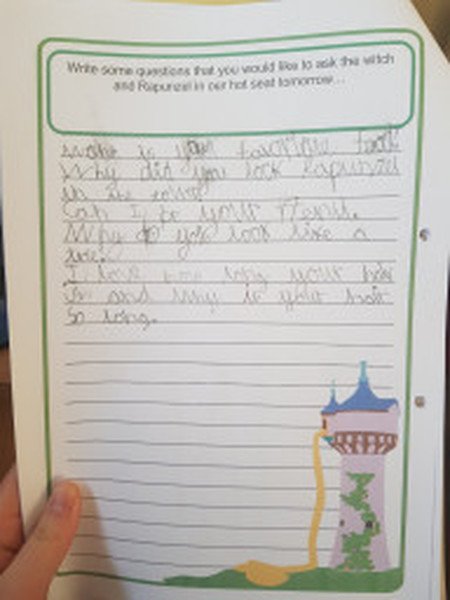 Write some questions that you would like to ask the witch
and Rapunzel in our hot seat tomorrow...
is your favourite food
Why did you lock Rapunzel
in the tower
Can I be your
Why do you look like a
I love how long your
is and why is your hair
so long.